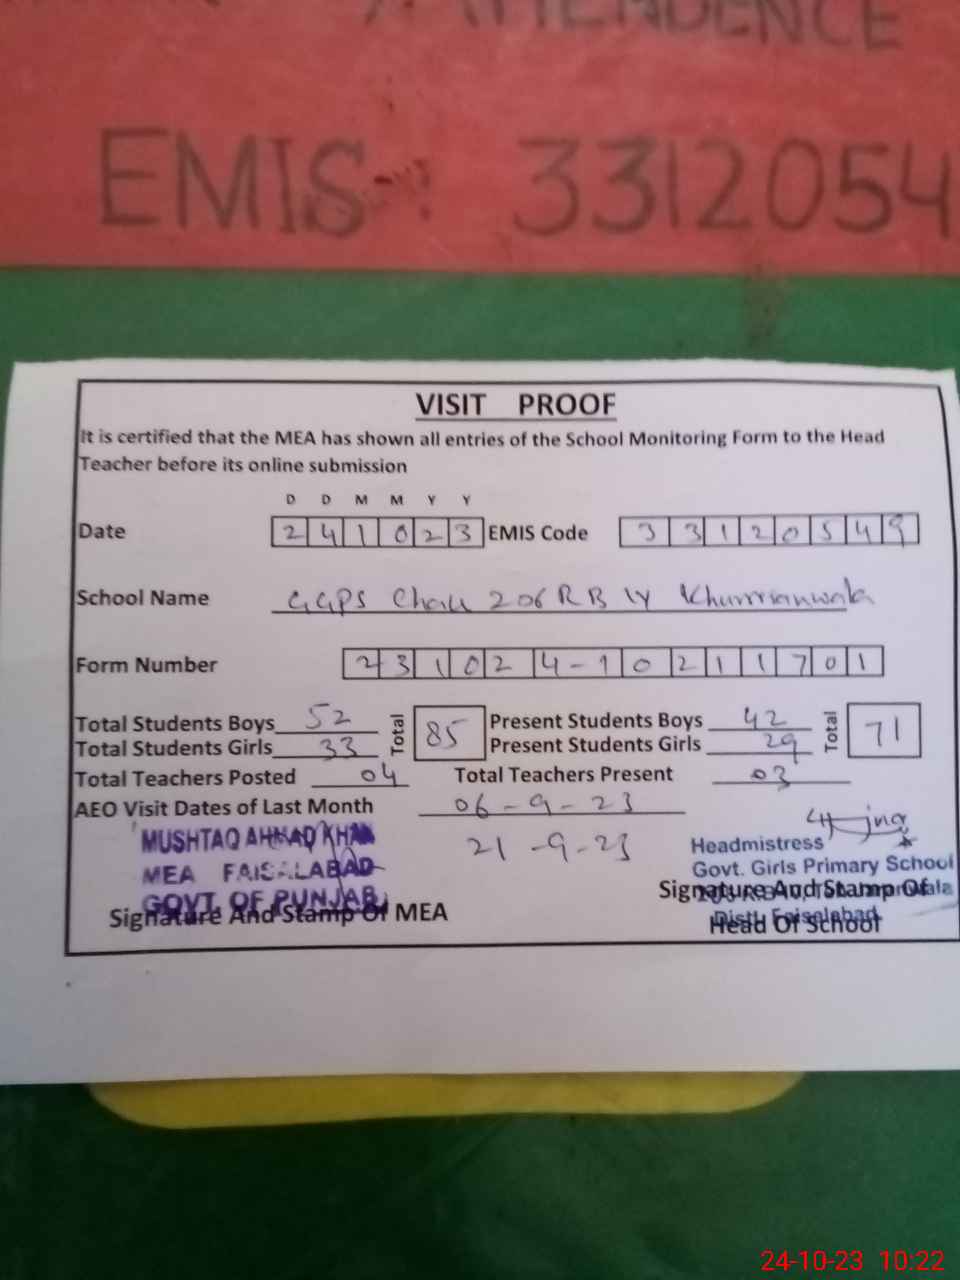 ATTENDENCE
EMIS-: 3312054
VISIT PROOF
It is certified that the MEA has shown all entries of the School Monitoring Form to the Head
Teacher before its online submission
D D M M Y Y
Date 241023 EMIS Code 33120549
School Name GGPS Chak 206 RB IV Khurrianwala
Form Number 231024-10211701
Total Students Boys 52 Total 85 Present Students Boys 42 Total 71
Total Students Girls 33 Present Students Girls 29
Total Teachers Posted 04 Total Teachers Present 03
AEO Visit Dates of Last Month 06-9-23
21-9-23
MUSHTAQ AHMAD KHAN
MEA FAISALABAD
GOVT. OF PUNJAB
Signature And Stamp Of MEA
Headmistress
Govt. Girls Primary School
Distt. Faisalabad
Signature And Stamp Of
Head Of School
24-10-23 10:22